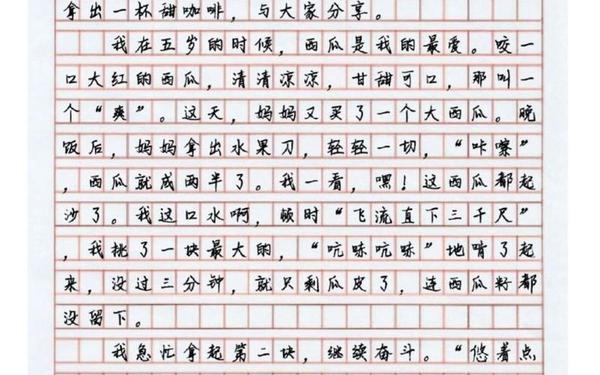 拿出一杯甜咖啡，与大家分享。
我在五岁的时候，西瓜是我的最爱。咬一
口大红的西瓜，清清凉凉，甘甜可口，那叫一
个“爽”。这天，妈妈又买了一个大西瓜。晚
饭后，妈妈拿出水果刀，轻轻一切，“咔嚓”
，西瓜就成两半了。我一看，嘿！这西瓜都起
沙了。我这口水啊，顿时“飞流直下三千尺”
，我挑了一块最大的，“吭哧吭哧”地啃了起
来，没过三分钟，就只剩瓜皮了，连西瓜籽都
没留下。
我急忙拿起第二块，继续奋斗。“悠着点